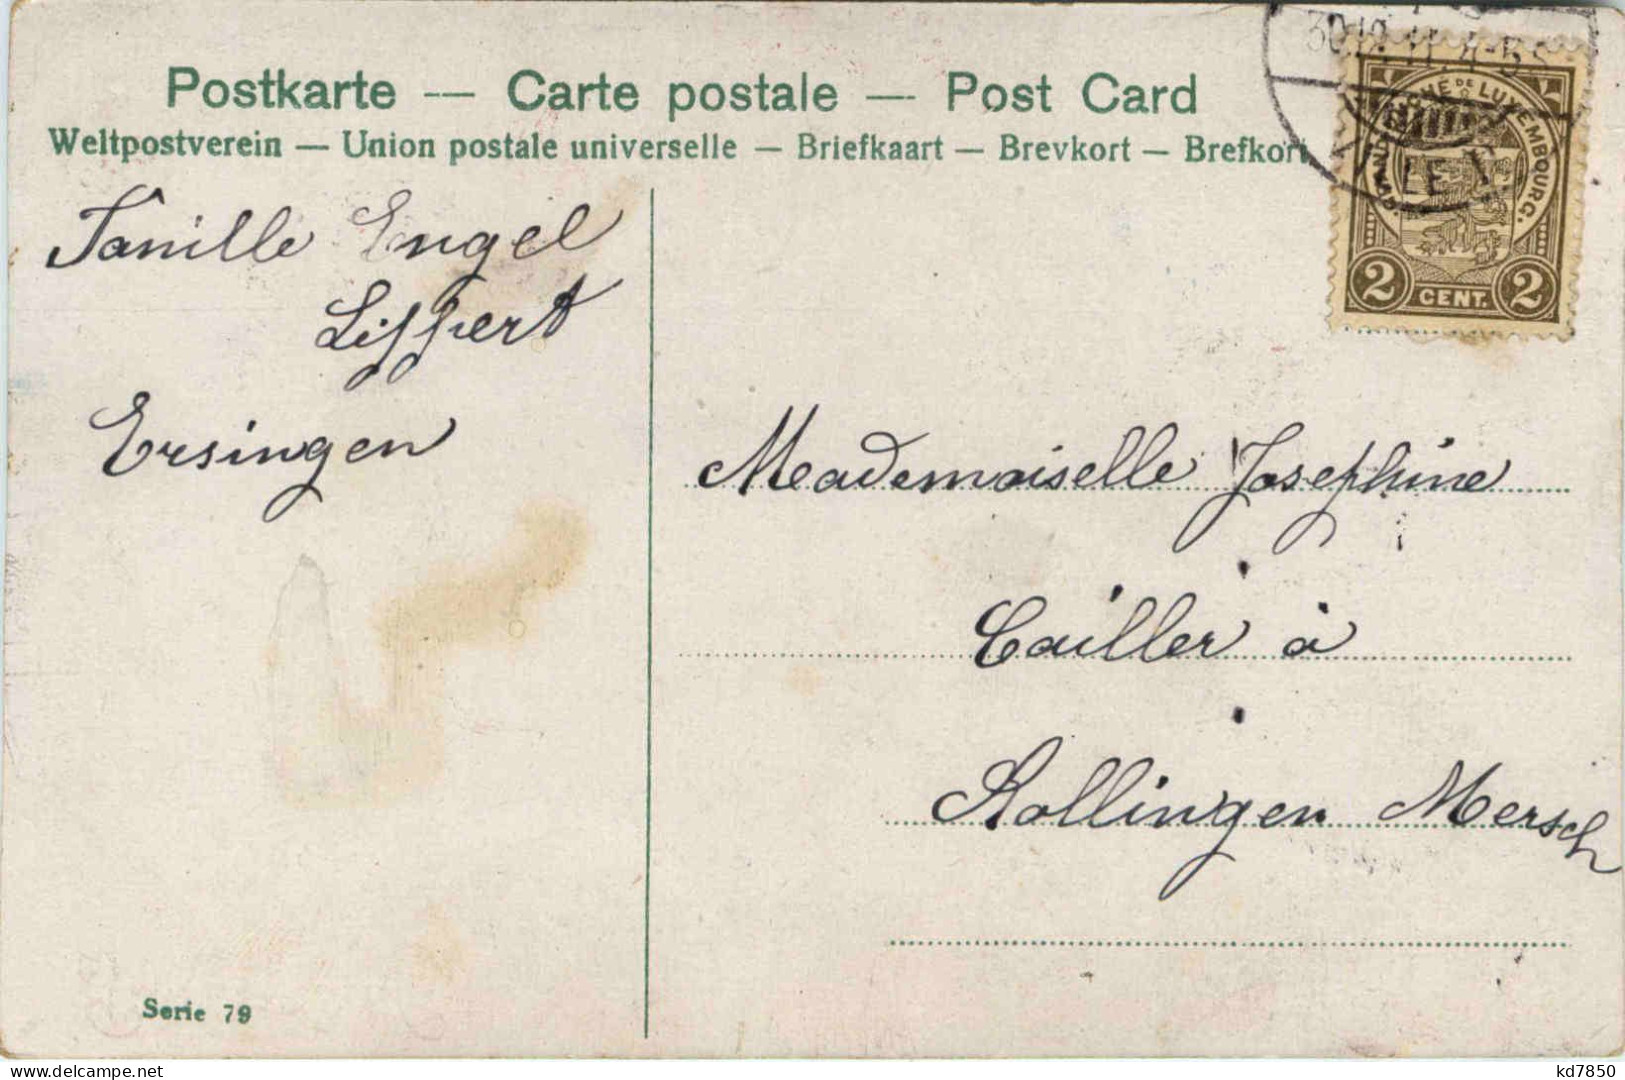 Postkarte — Carte postale — Post Card
Weltpostverein — Union postale universelle — Briefkaart — Brevkort — Brefkort
30.12.11. 4-5 S
GRAND DUCHÉ DE LUXEMBOURG.
2 CENT. 2
Familie Engel
Lippert
Ersingen
Meademoiselle Josephine
Cailler à
Rollingen Mersch
Serie 79
kd7850